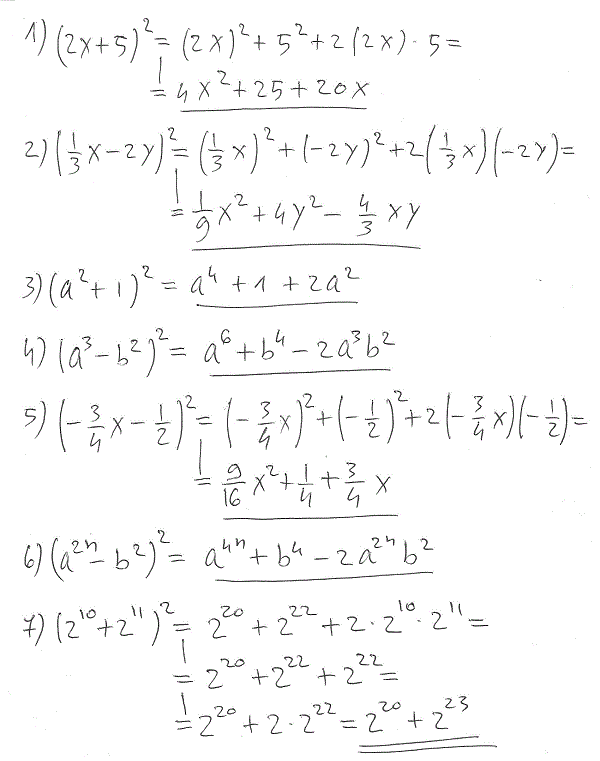 1) (2x+5)² = (2x)² + 5² + 2(2x)·5 =
= 4x² + 25 + 20x
2) (1/3 x − 2y)² = (1/3 x)² + (−2y)² + 2(1/3 x)(−2y) =
= 1/9 x² + 4y² − 4/3 xy
3) (a² + 1)² = a⁴ + 1 + 2a²
4) (a³ − b²)² = a⁶ + b⁴ − 2a³b²
5) (−3/4 x − 1/2)² = (−3/4 x)² + (−1/2)² + 2(−3/4 x)(−1/2) =
= 9/16 x² + 1/4 + 3/4 x
6) (a²ⁿ − b²)² = a⁴ⁿ + b⁴ − 2a²ⁿb²
7) (2¹⁰ + 2¹¹)² = 2²⁰ + 2²² + 2·2¹⁰·2¹¹ =
= 2²⁰ + 2²² + 2²² =
= 2²⁰ + 2·2²² = 2²⁰ + 2²³